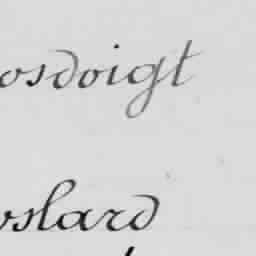 osdoigt
oslard